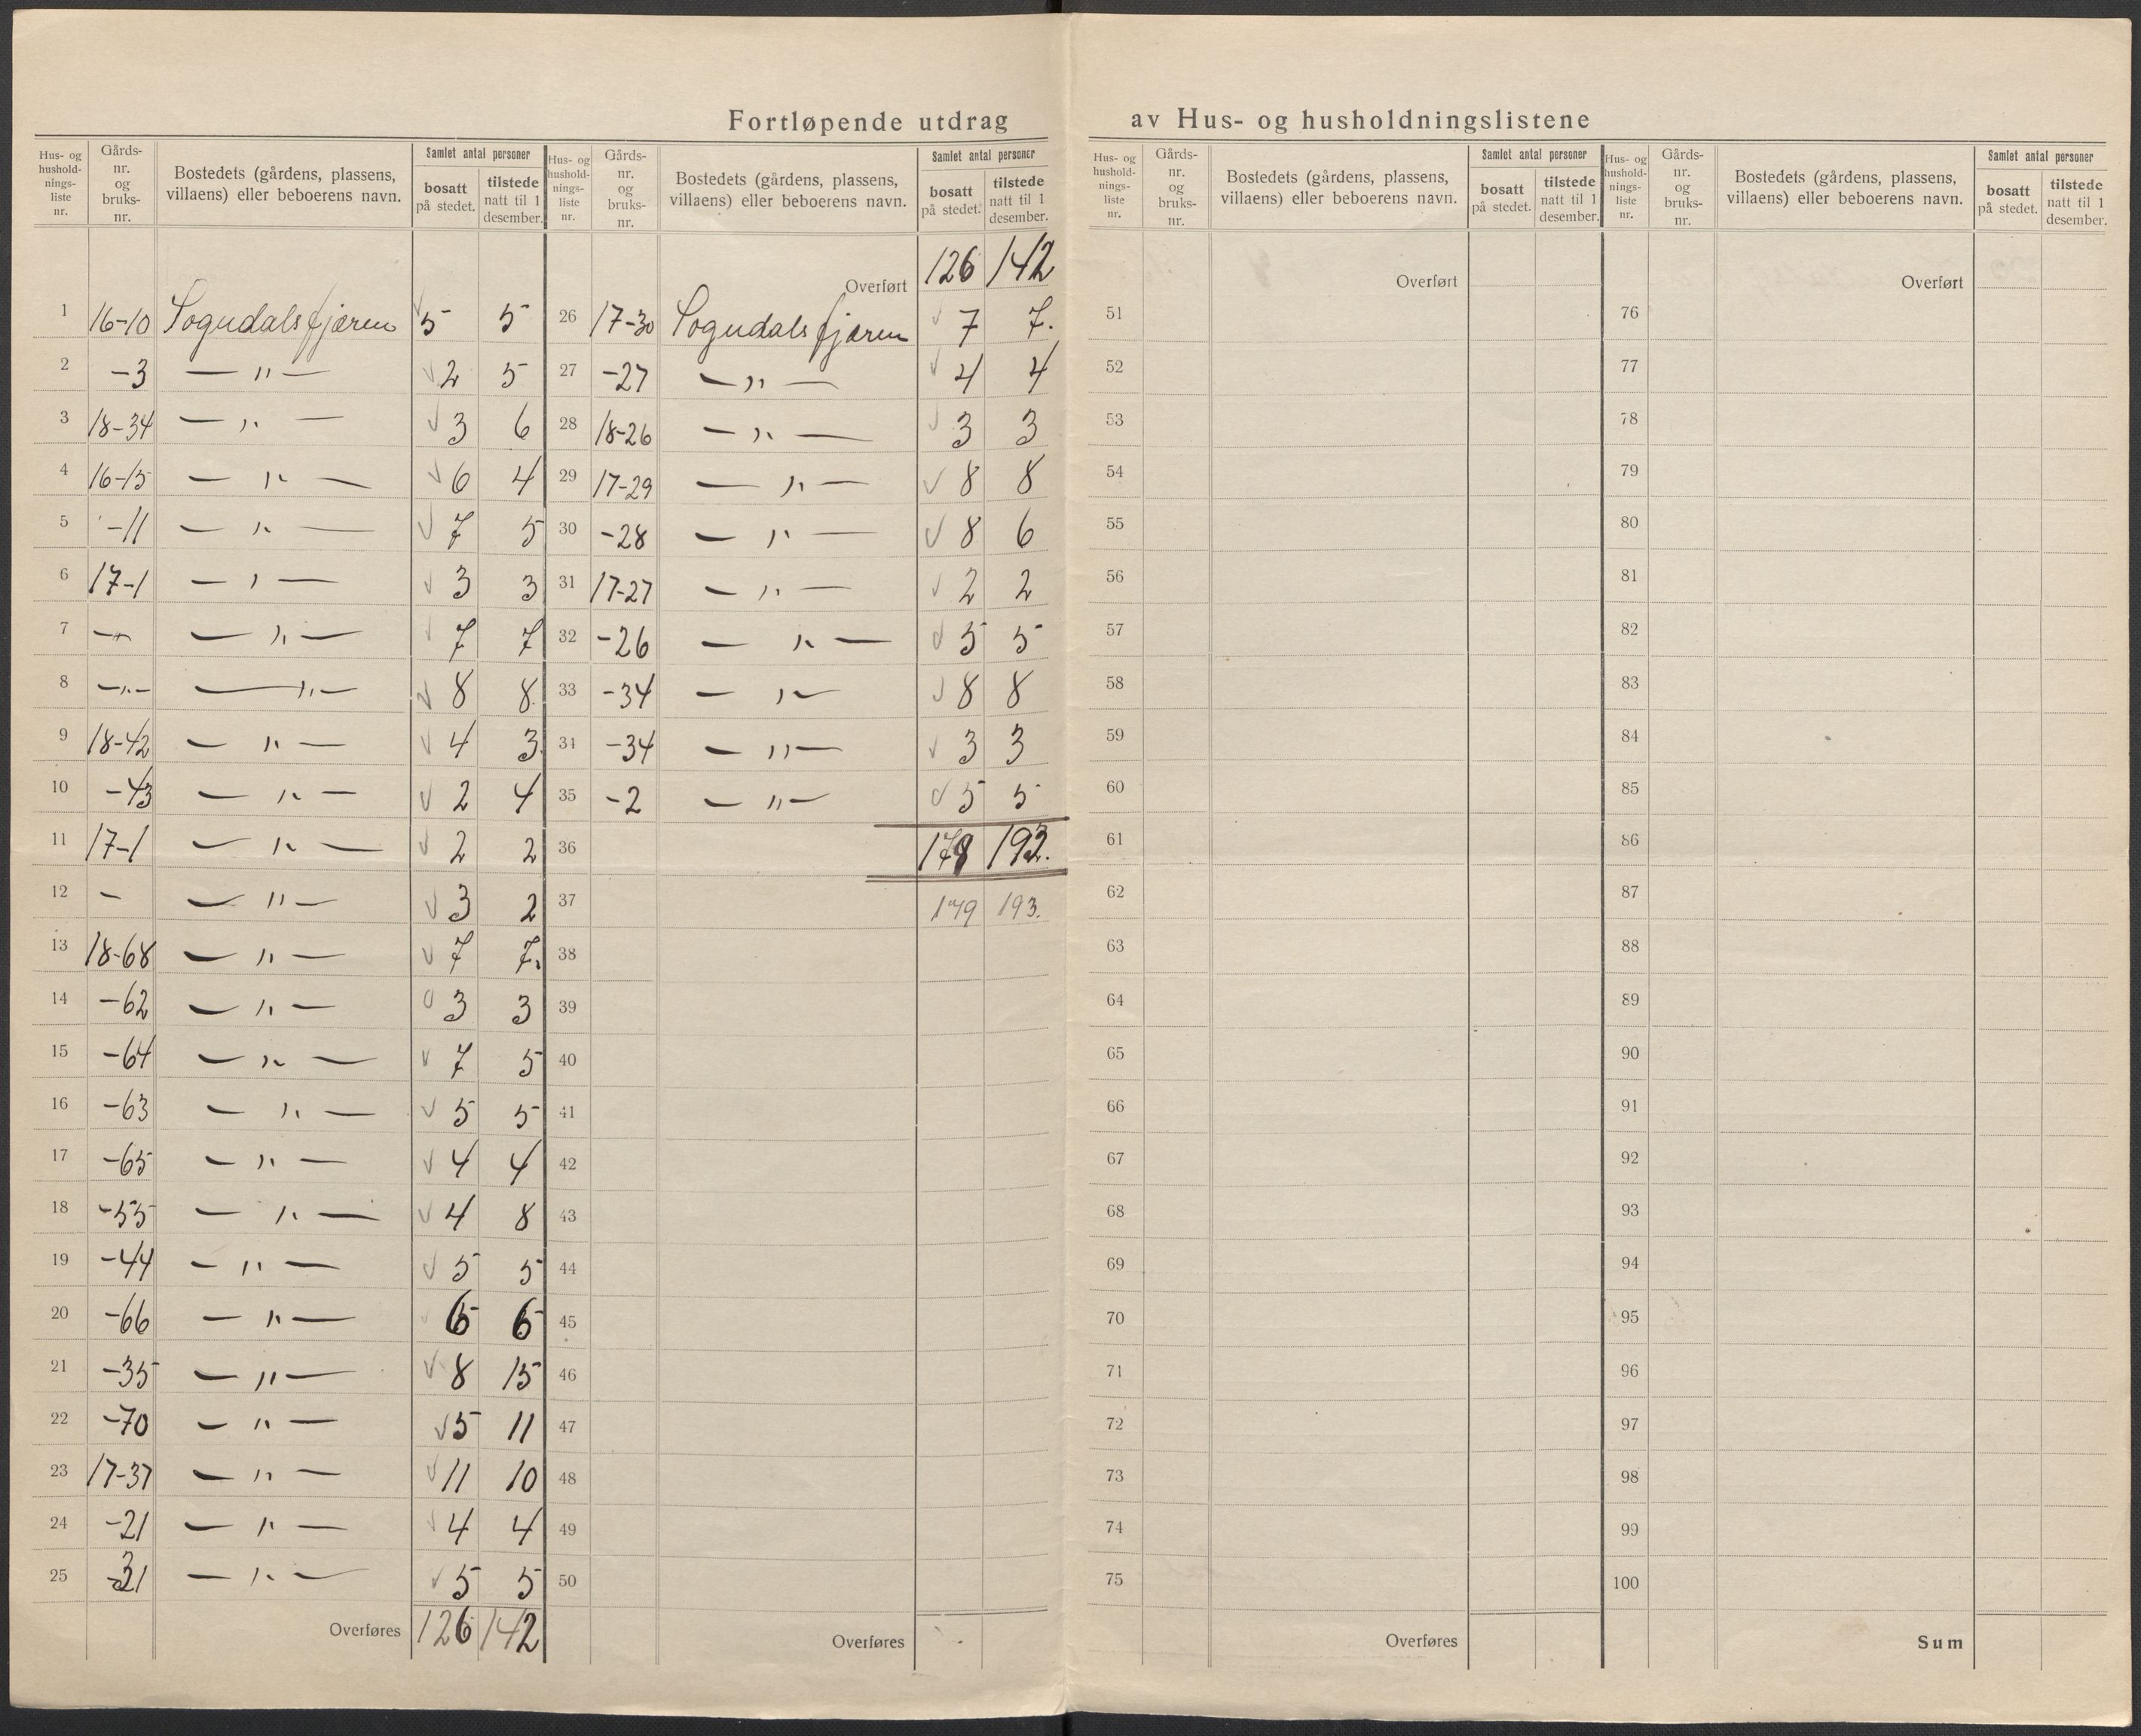 Fortløpende utdrag av Hus- og husholdningslistene
Hus- og husholdningsliste nr. Gårdsnr. og bruksnr. Bostedets (gårdens, plassens, villaens) eller beboerens navn. Samlet antal personer bosatt på stedet. tilstede natt til 1 desember.
1 16-10 Sogndalsfjæren 5 5
2 -3 — " — 2 5
3 18-34 — " — 3 6
4 16-15 — " — 6 4
5 -11 — " — 7 5
6 17-1 — " — 3 3
7 — " — — " — 7 7
8 — " — — " — 8 8
9 18-42 — " — 4 3
10 -43 — " — 2 4
11 17-1 — " — 2 2
12 - — " — 3 2
13 18-68 — " — 7 7.
14 -62 — " — 3 3
15 -64 — " — 7 5
16 -63 — " — 5 5
17 -65 — " — 4 4
18 -55 — " — 4 8
19 -44 — " — 5 5
20 -66 — " —
21 -35 — " — 8 15
22 -70 — " — 5 11
23 17-37 — " — 11 10
24 -21 — " — 4 4
25 — " — 5 5
Overføres 126 142
Hus- og husholdningsliste nr. Gårdsnr. og bruksnr. Bostedets (gårdens, plassens, villaens) eller beboerens navn. Samlet antal personer bosatt på stedet. tilstede natt til 1 desember.
Overført 126 142
26 17-30 Sogndalsfjæren 7 7.
27 -27 — " — 4 4
28 18-26 — " — 3 3
29 17-29 — " — 8 8
30 -28 — " — 8 6
31 17-27 — " — 2 2
32 -26 — " — 5 5
33 -34 — " — 8 8
34 -34 — " — 3 3
35 -2 — " — 5 5
36 193.
37 179 193.
38
39
40
41
42
43
44
45
46
47
48
49
50
Overføres
Hus- og husholdningsliste nr. Gårdsnr. og bruksnr. Bostedets (gårdens, plassens, villaens) eller beboerens navn. Samlet antal personer bosatt på stedet. tilstede natt til 1 desember.
Overført
51
52
53
54
55
56
57
58
59
60
61
62
63
64
65
66
67
68
69
70
71
72
73
74
75
Overføres
Hus- og husholdningsliste nr. Gårdsnr. og bruksnr. Bostedets (gårdens, plassens, villaens) eller beboerens navn. Samlet antal personer bosatt på stedet. tilstede natt til 1 desember.
Overført
76
77
78
79
80
81
82
83
84
85
86
87
88
89
90
91
92
93
94
95
96
97
98
99
100
Sum